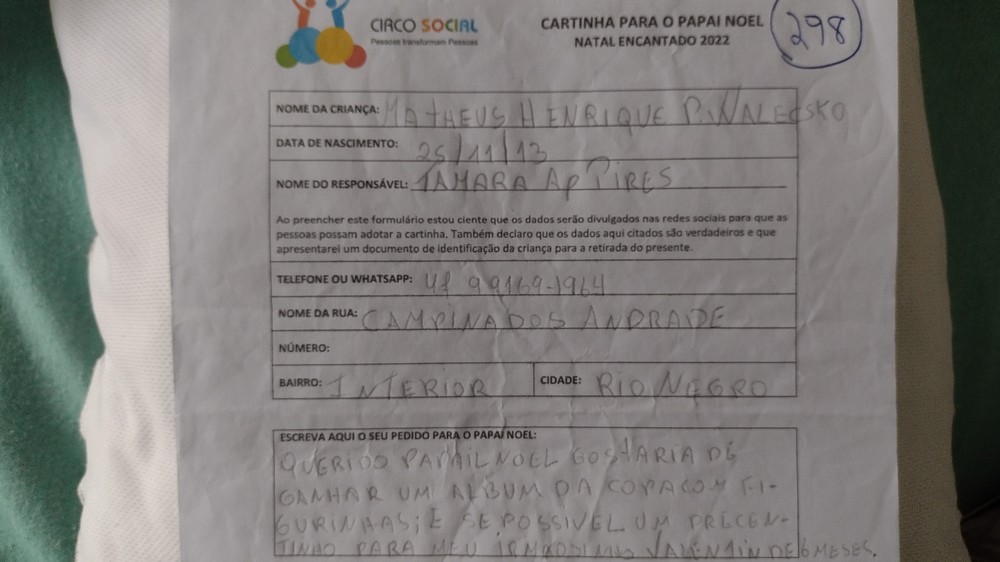 CIRCO SOCIAL
Pessoas transformam Pessoas
CARTINHA PARA O PAPAI NOEL
NATAL ENCANTADO 2022
298
NOME DA CRIANÇA: MATHEUS HENRIQUE P. WALECSKO
DATA DE NASCIMENTO: 25/11/13
NOME DO RESPONSÁVEL: TAMARA AP PIRES
Ao preencher este formulário estou ciente que os dados serão divulgados nas redes sociais para que as
pessoas possam adotar a cartinha. Também declaro que os dados aqui citados são verdadeiros e que
apresentarei um documento de identificação da criança para a retirada do presente.
TELEFONE OU WHATSAPP: 41 99169-1964
NOME DA RUA: CAMPINA DOS ANDRADE
NÚMERO:
BAIRRO: INTERIOR CIDADE: RIO NEGRO
ESCREVA AQUI O SEU PEDIDO PARA O PAPAI NOEL:
QUERIDO PAPAIL NOEL GOSTARIA DE
GANHAR UM ALBUM DA COPA COM FI-
GURINHAS; E SE POSSIVEL UM PRECEN-
TINHO PARA MEU VALENTIN DE 6 MESES.